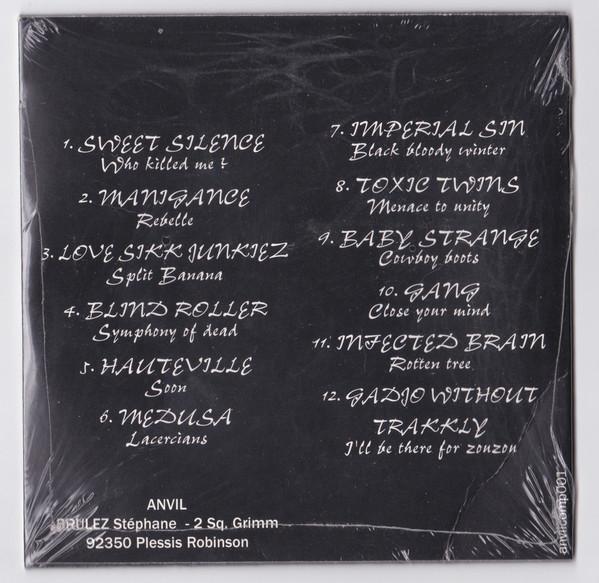 1. SWEET SILENCE
Who killed me ?
2. MANIGANCE
Rebelle
3. LOVE SIKK JUNKIEZ
Split Banana
4. BLIND ROLLER
Symphony of dead
5. HAUTEVILLE
Soon
6. MEDUSA
Lacercians
7. IMPERIAL SIN
Black bloody winter
8. TOXIC TWINS
Menace to unity
9. BABY STRANGE
Cowboy boots
10. GANG
Close your mind
11. INFECTED BRAIN
Rotten tree
12. GADJO WITHOUT
TRAKKLY
I'll be there for zouzou
ANVIL
BRULEZ Stéphane - 2 Sq. Grimm
92350 Plessis Robinson
anvilcomp001